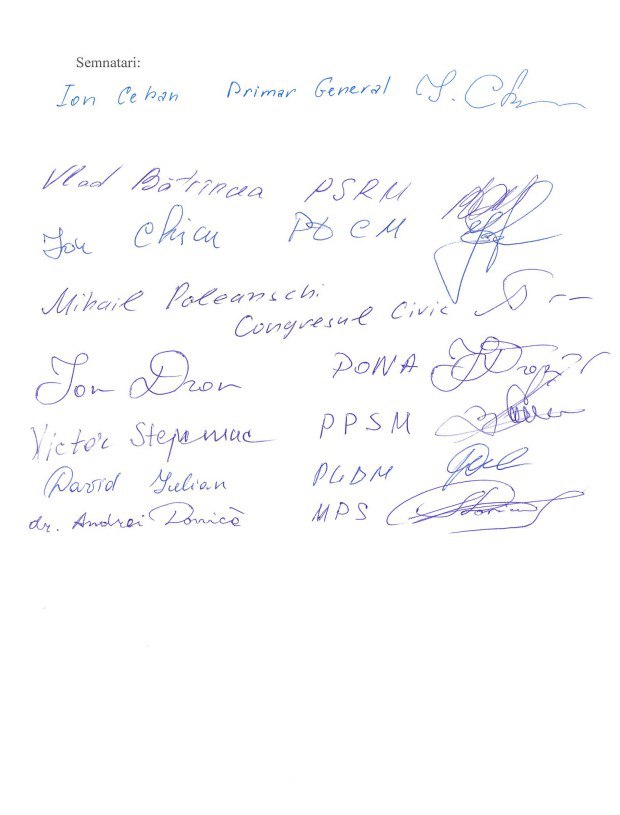 Semnatari:
Ion Ceban Primar General I. C
Vlad Bătrîncea PSRM
Ion Chicu PDCM
Mihail Poleanschi
Congresul Civic
Ion Dron PONA
Victor Stepaniuc PPSM
David Iulian PLDM
dr. Andrei Donică MPS